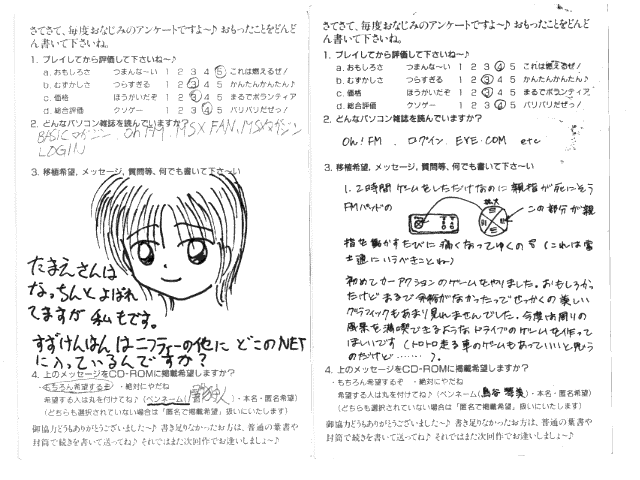 さてさて、毎度おなじみのアンケートですよ～♪ おもったことをどんど
ん書いて下さいね。
1. プレイしてから評価して下さいね～♪
a. おもしろさ つまんな～い 1 2 3 4 5 これは燃えるぜ！
b. むずかしさ つらすぎる 1 2 3 4 5 かんたんかんたん♪
c. 価格 ほうがいだぞ 1 2 3 4 5 まるでボランティア
d. 総合評価 クソゲー 1 2 3 4 5 バリバリだぜっ！
2. どんなパソコン雑誌を読んでいますか？
BASICマガジン Oh!FM, MSX FAN, MSXマガジン
LOGIN
3. 移植希望, メッセージ, 質問等、何でも書いて下さ～い
たまえさんは
なっちんとよばれ
てますが 私もです。
すずけんはんはニフティーの他に どこのNET
に入っているんですか？
4. 上のメッセージをCD-ROMに掲載希望しますか？
・もちろん希望するぞ ・絶対にやだね
希望する人は丸を付けてね♪（ペンネーム（ ）・本名・匿名希望）
（どちらも選択されていない場合は「匿名で掲載希望」扱いにいたします）
御協力どうもありがとうございました～♪ 書き足りなかったお方は、普通の葉書や
封筒で続きを書いて送ってね♪ それではまた次回作でお逢いしましょ～♪
さてさて、毎度おなじみのアンケートですよ～♪ おもったことをどんど
ん書いて下さいね。
1. プレイしてから評価して下さいね～♪
a. おもしろさ つまんな～い 1 2 3 4 5 これは燃えるぜ！
b. むずかしさ つらすぎる 1 2 3 4 5 かんたんかんたん♪
c. 価格 ほうがいだぞ 1 2 3 4 5 まるでボランティア
d. 総合評価 クソゲー 1 2 3 4 5 バリバリだぜっ！
2. どんなパソコン雑誌を読んでいますか？
Oh!FM . ログイン EYE・COM etc
3. 移植希望, メッセージ, 質問等、何でも書いて下さ～い
1. 2時間ゲームをしただけなのに親指が死にそう
FMパッドの この部分が親
指を動かすたびに痛くなってゆくの（これは富
士通にいうべきことね）
初めてカーアクションのゲームをやりました。おもしろかっ
たけどまるで余裕がなかったってせっかくの美しい
グラフィックもあまり見れませんでした。今度は周りの
風景を満喫できるようなドライブのゲームを作って
ほしいです（トロトロ走る車のゲームもあっていいと思う
のだけど……）。
4. 上のメッセージをCD-ROMに掲載希望しますか？
・もちろん希望するぞ ・絶対にやだね
希望する人は丸を付けてね♪（ペンネーム（ ）・本名・匿名希望）
（どちらも選択されていない場合は「匿名で掲載希望」扱いにいたします）
御協力どうもありがとうございました～♪ 書き足りなかったお方は、普通の葉書や
封筒で続きを書いて送ってね♪ それではまた次回作でお逢いしましょ～♪